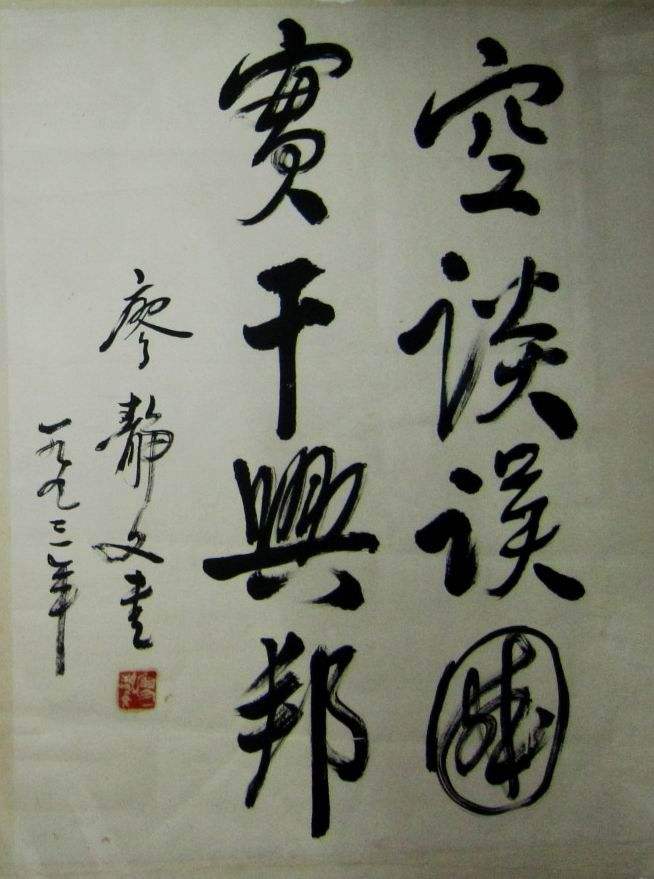 空谈误國
實干興邦
廖静文書
一九九三年